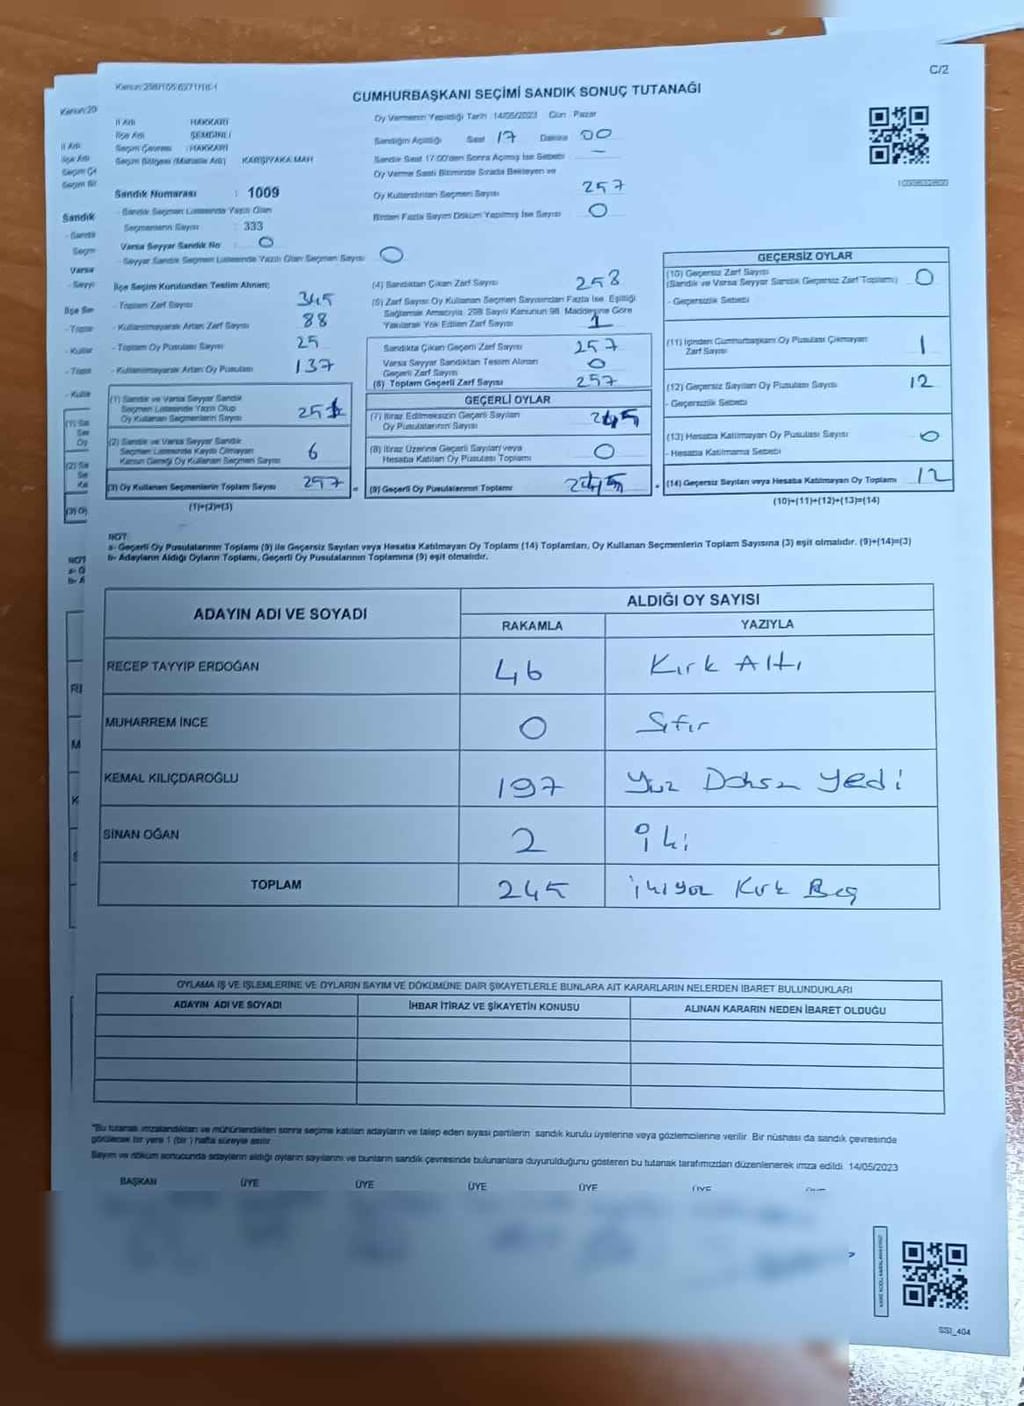 C/2
CUMHURBAŞKANI SEÇİMİ SANDIK SONUÇ TUTANAĞI
İl Adı HAKKARİ
İlçe Adı ŞEMDİNLİ
Seçim Çevresi : HAKKARİ
Seçim Bölgesi (Mahalle Adı) KARŞIYAKA MAH
Sandık Numarası : 1009
- Sandık Seçmen Listesinde Yazılı Olan
Seçmenlerin Sayısı : 333
Varsa Seyyar Sandık No : 0
- Seyyar Sandık Seçmen Listesinde Yazılı Olan Seçmen Sayısı 0
Oy Vermenin Yapıldığı Tarih 14/05/2023 Gün Pazar
Sandığın Açıldığı Saat 17 Dakika 00
Sandık Saat 17:00'den Sonra Açılmış İse Sebebi —
Oy Verme Saati Bitiminde Sırada Bekleyen ve
Oy Kullandırılan Seçmen Sayısı 257
Birden Fazla Sayım Döküm Yapılmış İse Sayısı 0
İlçe Seçim Kurulundan Teslim Alınan;
- Toplam Zarf Sayısı 345
- Kullanılmayarak Artan Zarf Sayısı 88
- Toplam Oy Pusulası Sayısı 25
- Kullanılmayarak Artan Oy Pusulası 137
(1) Sandık ve Varsa Seyyar Sandık
Seçmen Listesinde Yazılı Olup
Oy Kullanan Seçmenlerin Sayısı 251
(2) Sandık ve Varsa Seyyar Sandık
Seçmen Listesinde Kayıtlı Olmayan
Kanun Gereği Oy Kullanan Seçmen Sayısı 6
(3) Oy Kullanan Seçmenlerin Toplam Sayısı 257
(1)+(2)=(3)
(4) Sandıktan Çıkan Zarf Sayısı 258
(5) Zarf Sayısı Oy Kullanan Seçmen Sayısından Fazla İse, Eşitliği
Sağlamak Amacıyla, 298 Sayılı Kanunun 98. Maddesine Göre
Yakılarak Yok Edilen Zarf Sayısı 1
Sandıkta Çıkan Geçerli Zarf Sayısı 257
Varsa Seyyar Sandıktan Teslim Alınan
Geçerli Zarf Sayısı 0
(6) Toplam Geçerli Zarf Sayısı 257
GEÇERLİ OYLAR
(7) İtiraz Edilmeksizin Geçerli Sayılan
Oy Pusulalarının Sayısı 245
(8) İtiraz Üzerine Geçerli Sayılan veya
Hesaba Katılan Oy Pusulası Toplamı 0
(9) Geçerli Oy Pusulalarının Toplamı 245
GEÇERSİZ OYLAR
(10) Geçersiz Zarf Sayısı
(Sandık ve Varsa Seyyar Sandık Geçersiz Zarf Toplamı) 0
- Geçersizlik Sebebi
(11) İçinden Cumhurbaşkanı Oy Pusulası Çıkmayan
Zarf Sayısı 1
(12) Geçersiz Sayılan Oy Pusulası Sayısı 12
- Geçersizlik Sebebi
(13) Hesaba Katılmayan Oy Pusulası Sayısı 0
- Hesaba Katılmama Sebebi
(14) Geçersiz Sayılan veya Hesaba Katılmayan Oy Toplamı 12
(10)+(11)+(12)+(13)=(14)
NOT:
a- Geçerli Oy Pusulalarının Toplamı (9) ile Geçersiz Sayılan veya Hesaba Katılmayan Oy Toplamı (14) Toplamları, Oy Kullanan Seçmenlerin Toplam Sayısına (3) eşit olmalıdır. (9)+(14)=(3)
b- Adayların Aldığı Oyların Toplamı, Geçerli Oy Pusulalarının Toplamına (9) eşit olmalıdır.
ADAYIN ADI VE SOYADI ALDIĞI OY SAYISI
RAKAMLA YAZIYLA
RECEP TAYYİP ERDOĞAN 46 Kırk Altı
MUHARREM İNCE 0 Sıfır
KEMAL KILIÇDAROĞLU 197 Yüz Doksan Yedi
SİNAN OĞAN 2 İki
TOPLAM 245 İkiyüz Kırk Beş
OYLAMA İŞ VE İŞLEMLERİNE VE OYLARIN SAYIM VE DÖKÜMÜNE DAİR ŞİKAYETLERLE BUNLARA AİT KARARLARIN NELERDEN İBARET BULUNDUKLARI
ADAYIN ADI VE SOYADI İHBAR İTİRAZ VE ŞİKAYETİN KONUSU ALINAN KARARIN NEDEN İBARET OLDUĞU
"Bu tutanak imzalandıktan ve mühürlendikten sonra seçime katılan adayların ve talep eden siyasi partilerin sandık kurulu üyelerine veya gözlemcilerine verilir. Bir nüshası da sandık çevresinde
görülecek bir yere 1 (bir) hafta süreyle asılır.
Sayım ve döküm sonucunda adayların aldığı oyların sayılarını ve bunların sandık çevresinde bulunanlara duyurulduğunu gösteren bu tutanak tarafımızdan düzenlenerek imza edildi. 14/05/2023
BAŞKAN ÜYE ÜYE ÜYE ÜYE ÜYE
SSI_404